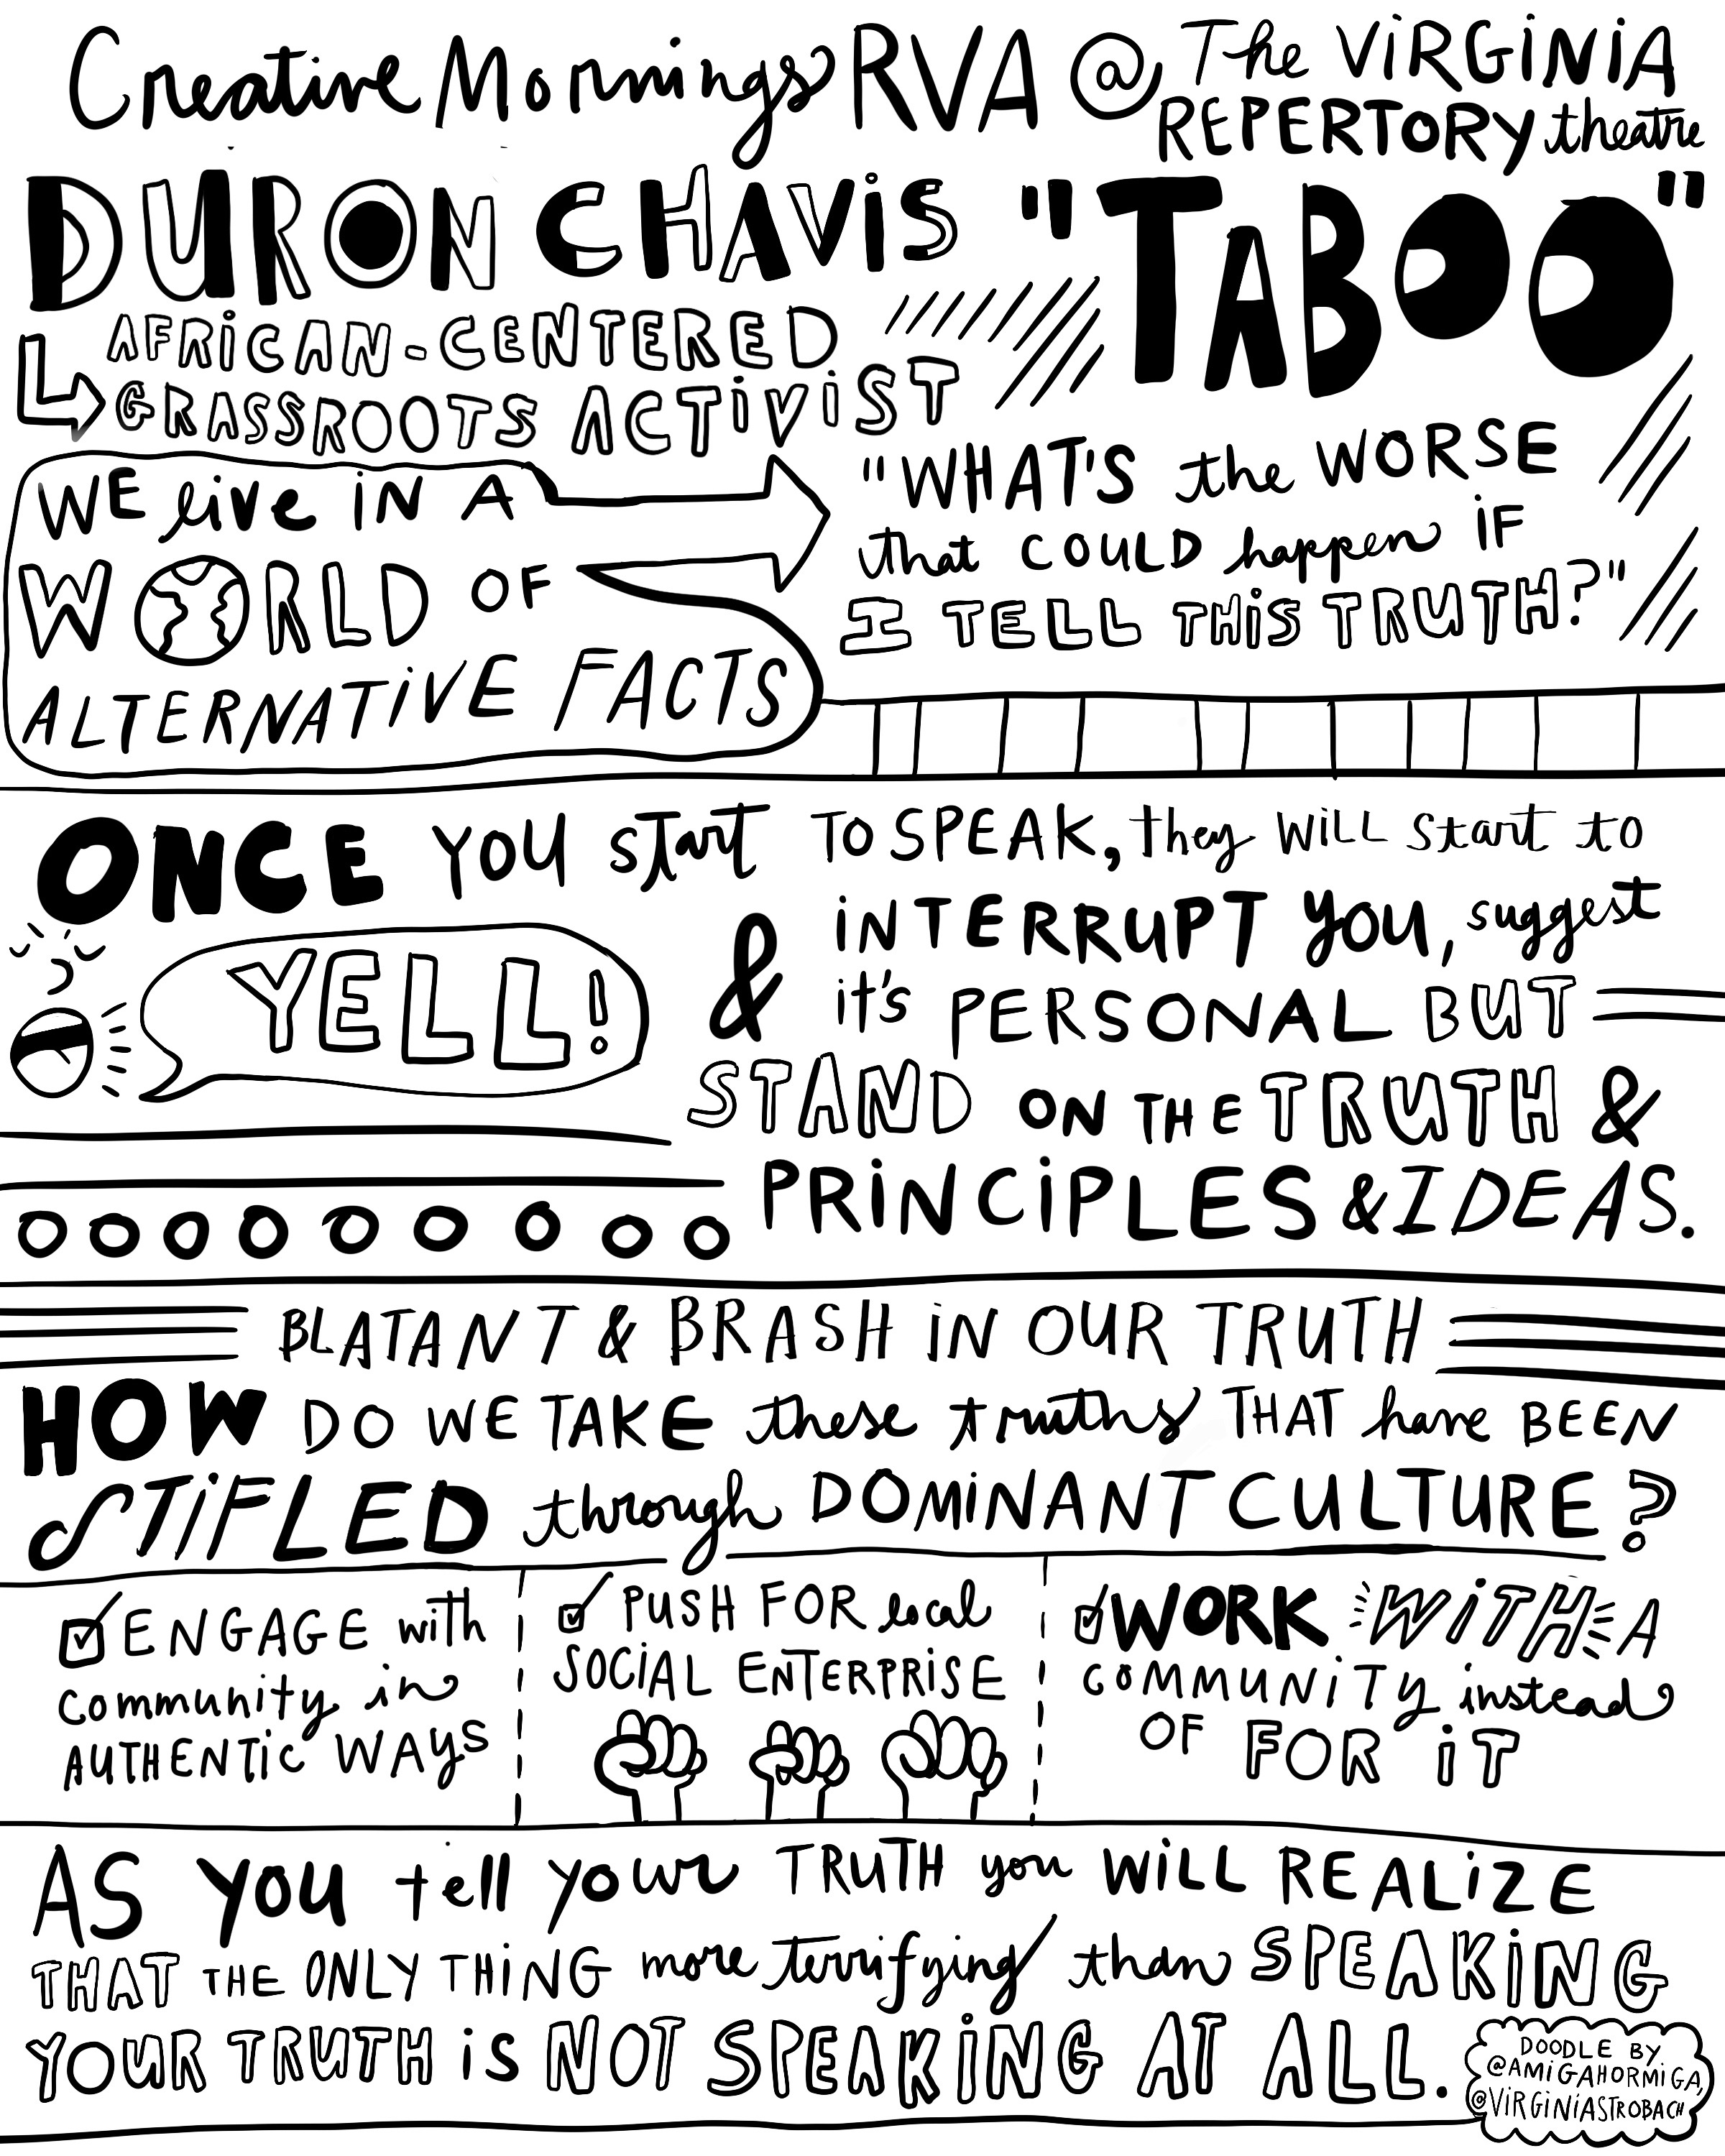 Creative Mornings RVA @ The ViRGiNiA
REPERTORY theatre
DURON CHAViS
"TABOO"
AFRiCAN-CENTERED
GRASSROOTS ACTiViST
WE live iN A
WORLD OF
ALTERNATiVE FACTS
"WHAT'S the WORSE
that COULD happen iF
I TELL THiS TRUTH?"
ONCE YOU start TO SPEAK, they WiLL start to
YELL!
& iNTERRUPT YOU, suggest
it's PERSONAL BUT
STAND ON THE TRUTH &
PRiNCiPLES & IDEAS.
BLATANT & BRASH iN OUR TRUTH
HOW DO WE TAKE these truths THAT have BEEN
STiFLED through DOMiNANT CULTURE?
ENGAGE with
community in
AUTHENTiC WAYS
PUSH FOR local
SOCiAL ENTERPRiSE
WORK WiTH A
COMMUNiTY instead
OF FOR iT
AS YOU tell your TRUTH you WiLL REALiZE
THAT THE ONLY THiNG more terrifying than SPEAKiNG
YOUR TRUTH iS NOT SPEAKiNG AT ALL.
DOODLE BY
@AMiGAHORMiGA,
@ViRGiNiASTROBACH